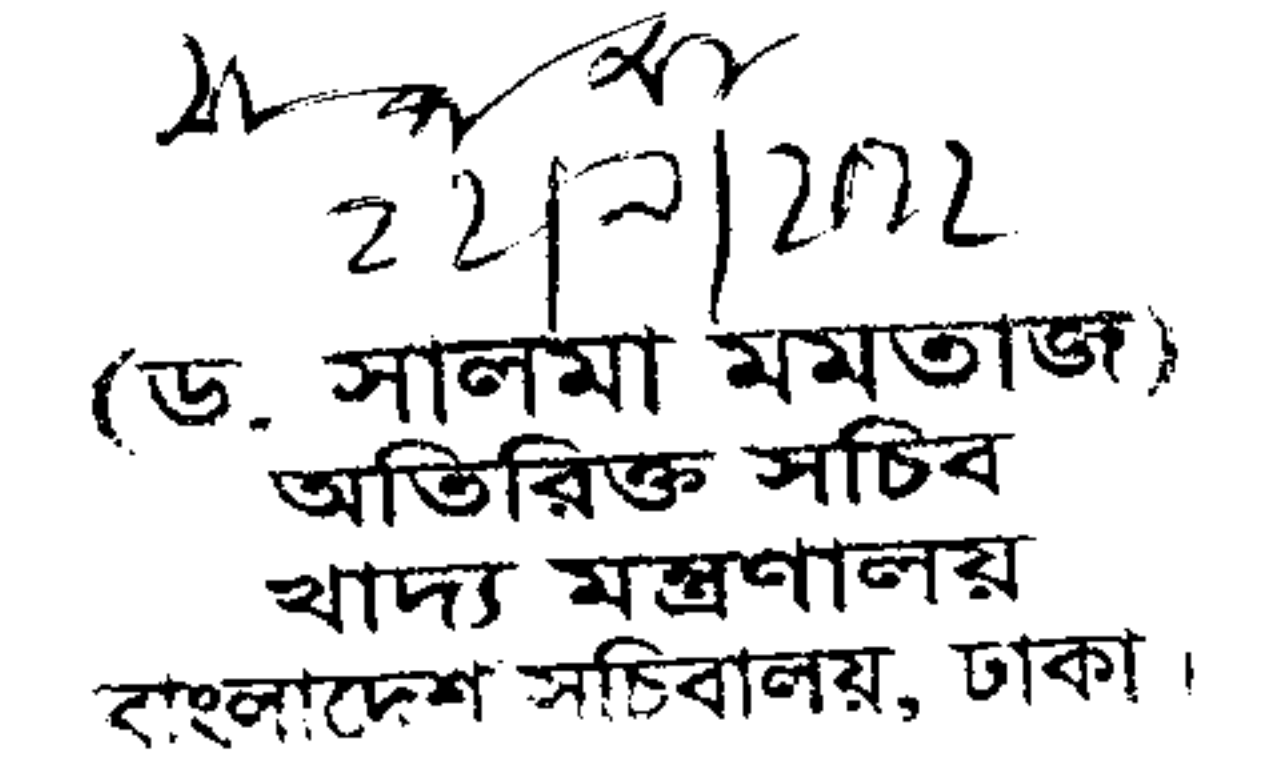 (ড. সালমা মমতাজ)
অতিরিক্ত সচিব
খাদ্য মন্ত্রণালয়
বাংলাদেশ সচিবালয়, ঢাকা।